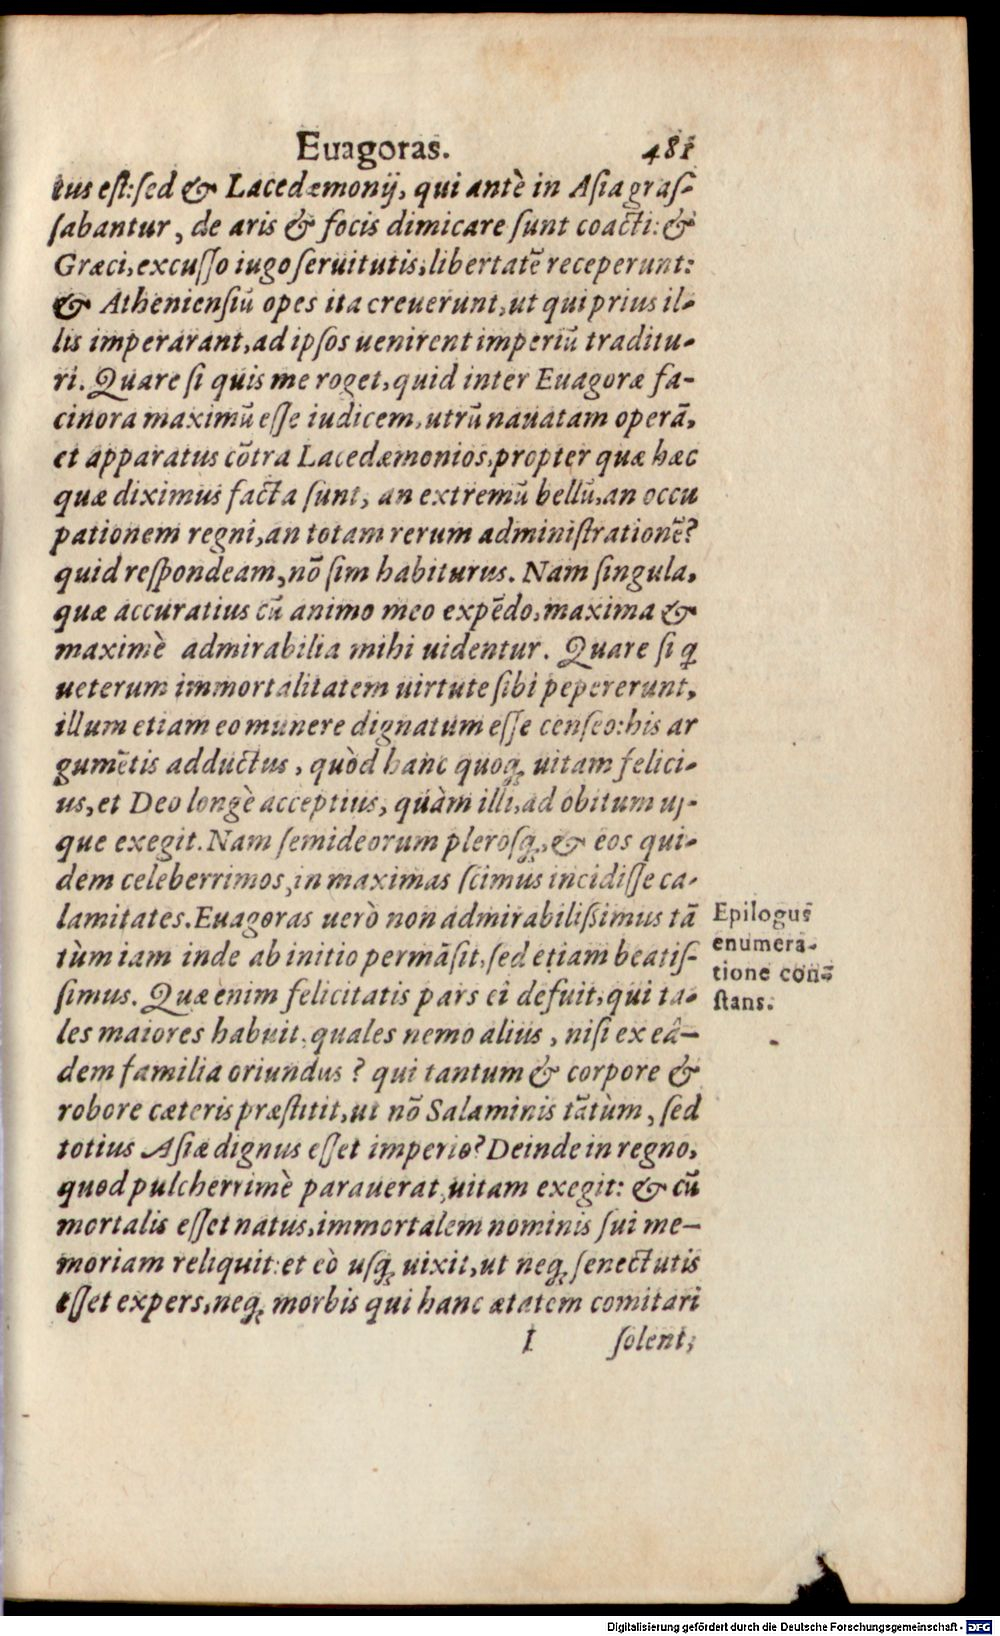 Euagoras. 481
tus est: sed & Lacedæmonij, qui antè in Asia gras-
sabantur, de aris & focis dimicare sunt coacti: &
Græci, excusso iugo seruitutis, libertatẽ receperunt:
& Atheniensiũ opes ita creuerunt, ut qui prius il-
lis imperarant, ad ipsos uenirent imperiũ traditu-
ri. Quare si quis me roget, quid inter Euagoræ fa-
cinora maximũ esse iudicem, utrũ nauatam operã,
et apparatus cõtra Lacedæmonios, propter quæ hæc
quæ diximus facta sunt, an extremũ bellũ, an occu
pationem regni, an totam rerum administrationẽ?
quid respondeam, nõ sim habiturus. Nam singula,
quæ accuratius cũ animo meo expẽdo, maxima &
maximè admirabilia mihi uidentur. Quare si q
ueterum immortalitatem uirtute sibi pepererunt,
illum etiam eo munere dignatum esse censeo: his ar
gumẽtis adductus, quòd hanc quoq; uitam felici-
us, et Deo longè acceptius, quàm illi, ad obitum us-
que exegit. Nam semideorum plerosq;, & eos qui-
dem celeberrimos, in maximas scimus incidisse ca-
lamitates. Euagoras uerò non admirabilissimus tã
tùm iam inde ab initio permãsit, sed etiam beatis-
simus. Quæ enim felicitatis pars ei defuit, qui ta-
les maiores habuit, quales nemo alius, nisi ex eâ-
dem familia oriundus? qui tantum & corpore &
robore cæteris præstitit, ut nõ Salaminis tãtùm, sed
totius Asiæ dignus esset imperio? Deinde in regno,
quod pulcherrimè parauerat, uitam exegit: & cũ
mortalis esset natus, immortalem nominis sui me-
moriam reliquit: et eò usq; uixit, ut neq; senectutis
esset expers, neq; morbis qui hanc ætatem comitari
I solent;
Epilogus
enumera-
tione con-
stans.
Digitalisierung gefördert durch die Deutsche Forschungsgemeinschaft - DFG